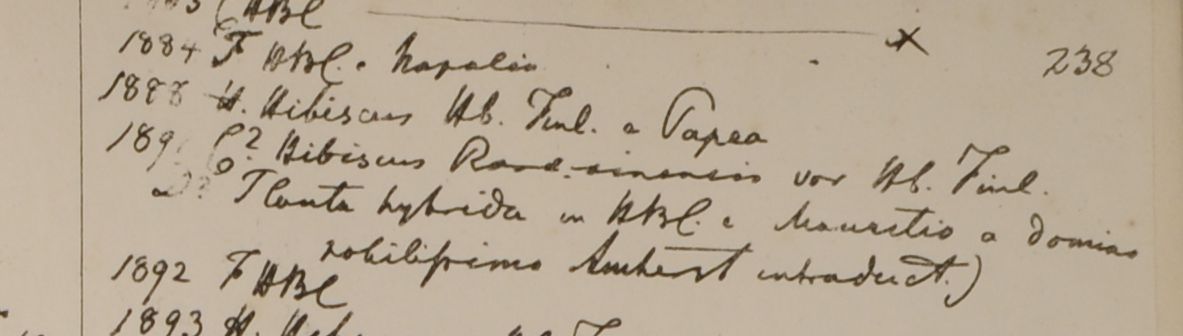 HBC
1884 F HBC. e Napalia 238
1888 H. Hibiscus Hb. Finl. e Papra
189 C? Hibiscus Rosa-sinensis var Hb. Finl.
D? Planta hybrida in HBC. e Mauritio a domino
nobilissimo Amherst introduct.)
1892 F HBC
1893 H.